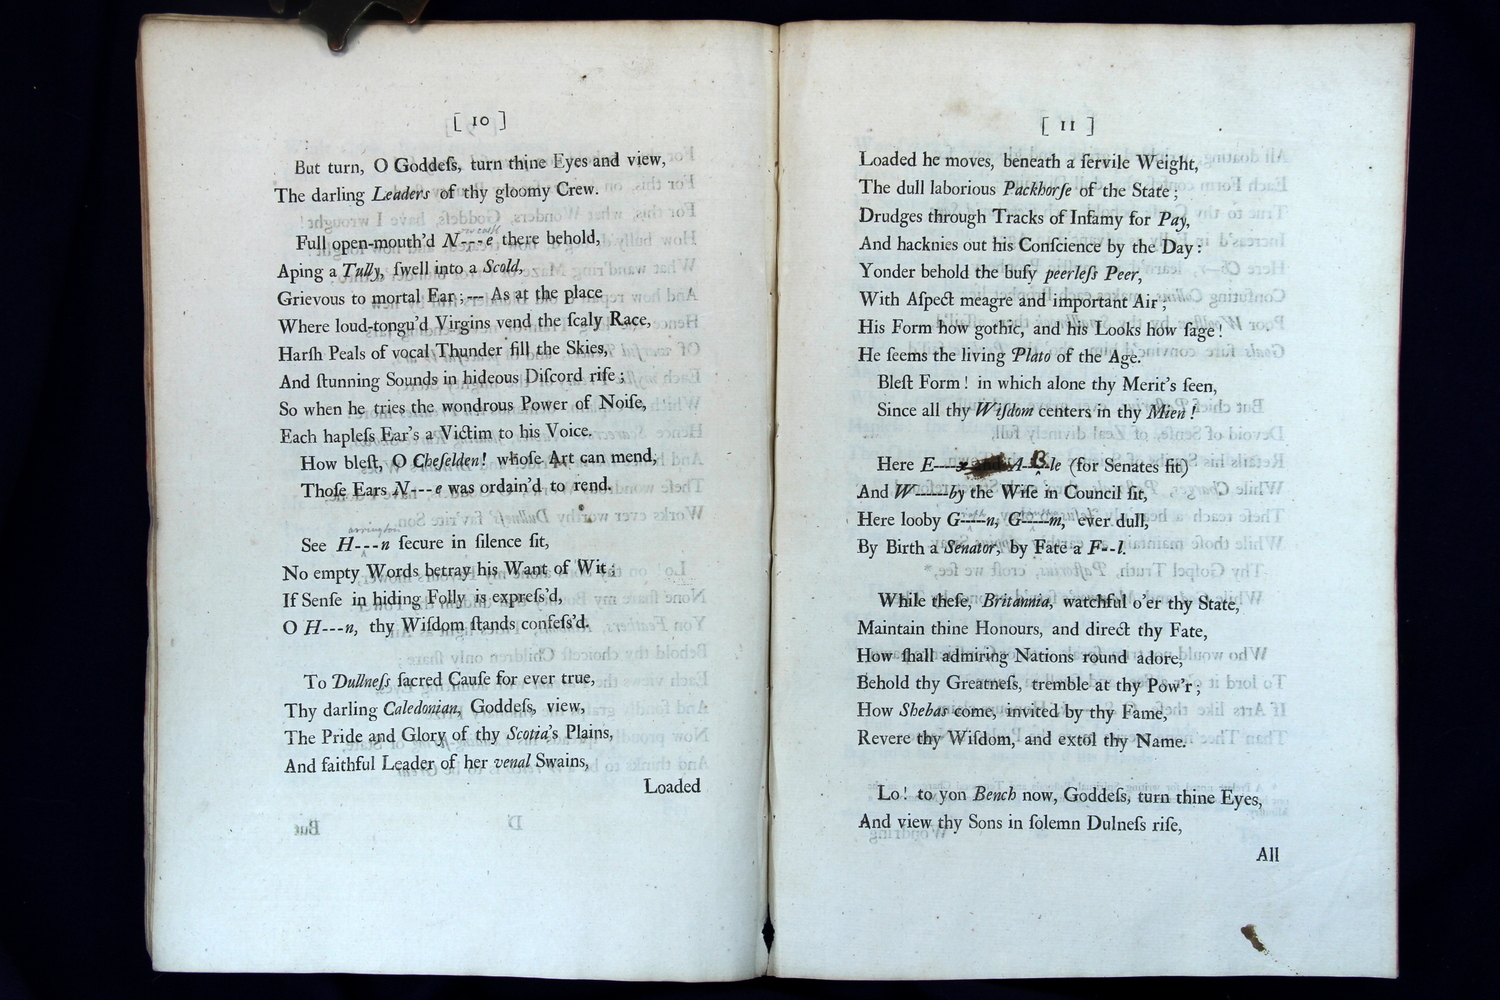 [ 10 ]
But turn, O Goddeſs, turn thine Eyes and view,
The darling Leaders of thy gloomy Crew.
Full open-mouth'd N---e there behold,
Aping a Tully, ſwell into a Scold,
Grievous to mortal Ear;--- As at the place
Where loud-tongu'd Virgins vend the ſcaly Race,
Harſh Peals of vocal Thunder fill the Skies,
And ſtunning Sounds in hideous Diſcord riſe;
So when he tries the wondrous Power of Noiſe,
Each hapleſs Ear's a Victim to his Voice.
How bleſt, O Cheſelden! whoſe Art can mend,
Thoſe Ears N---e was ordain'd to rend.
arrington
See H---n ſecure in ſilence ſit,
No empty Words betray his Want of Wit;
If Senſe in hiding Folly is expreſs'd,
O H---n, thy Wiſdom ſtands confeſs'd.
To Dullneſs ſacred Cauſe for ever true,
Thy darling Caledonian, Goddeſs, view,
The Pride and Glory of thy Scotia's Plains,
And faithful Leader of her venal Swains,
Loaded
[ 11 ]
Loaded he moves, beneath a ſervile Weight,
The dull laborious Packhorſe of the State;
Drudges through Tracks of Infamy for Pay,
And hacknies out his Conſcience by the Day:
Yonder behold the buſy peerleſs Peer,
With Aſpect meagre and important Air;
His Form how gothic, and his Looks how ſage!
He ſeems the living Plato of the Age.
Bleſt Form! in which alone thy Merit's ſeen,
Since all thy Wiſdom centers in thy Mien!
Here E---- and A--B--le (for Senates fit)
And W------by the Wiſe in Council ſit,
Here looby G-----n, G-----m, ever dull,
By Birth a Senator, by Fate a F--l.
While theſe, Britannia, watchful o'er thy State,
Maintain thine Honours, and direct thy Fate,
How ſhall admiring Nations round adore,
Behold thy Greatneſs, tremble at thy Pow'r;
How Shebas come, invited by thy Fame,
Revere thy Wiſdom, and extol thy Name.
Lo! to yon Bench now, Goddeſs, turn thine Eyes,
And view thy Sons in ſolemn Dulneſs riſe,
All